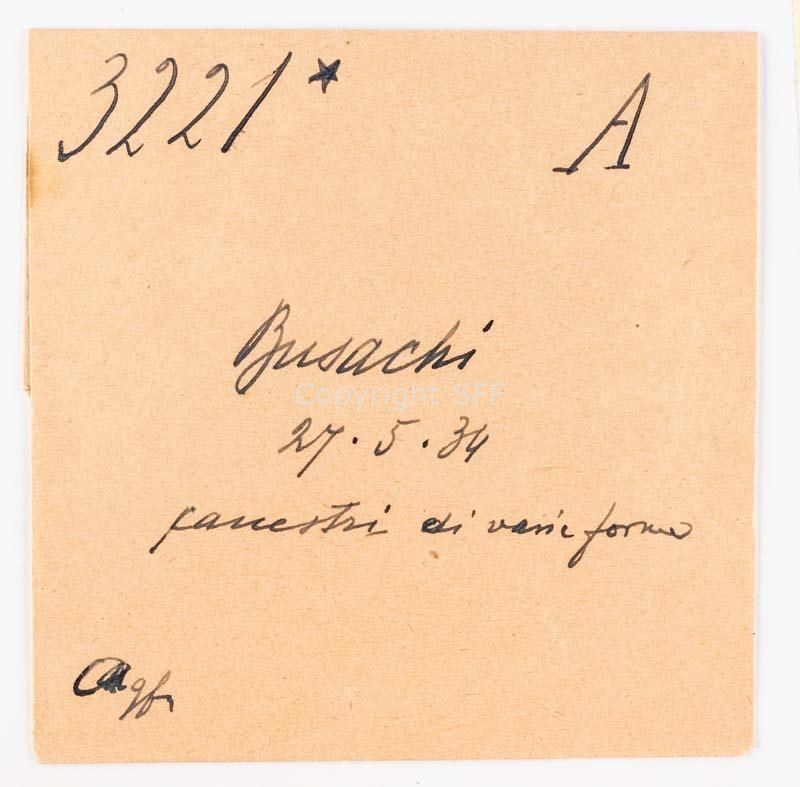 3221* A
Busachi
Copyright SFF
27.5.34
canestri di varie forme